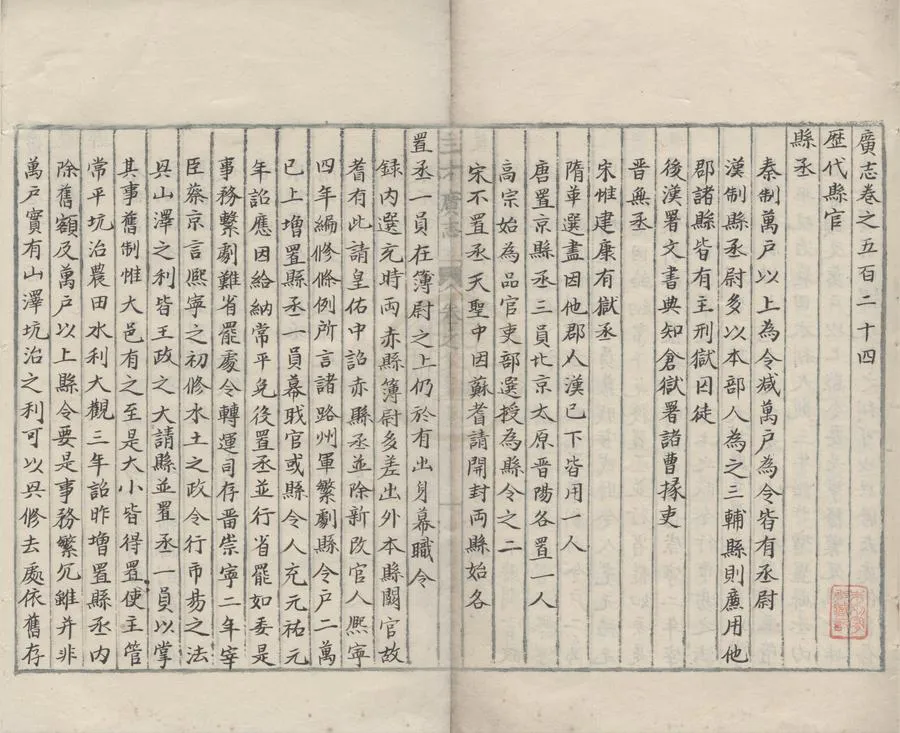 廣志卷之五百二十四
歷代縣官
縣丞
秦制萬戶以上為令減萬戶為令皆有丞尉
漢制縣丞尉多以本部人為之三輔縣則廌用他
郡諸縣皆有主刑獄囚徒
後漢署文書典知倉獄署諸曹掾吏
晉無丞
宋惟建康有獄丞
隋革選盡因他郡人漢已下皆用一人
唐置京縣丞三員北京太原晋陽各置一人
高宗始為品官吏部選授為縣令之二
宋不置丞天聖中因蘇耆請開封両縣始各
置丞一員在簿尉之上仍於有出身幕職令
録內選充時両赤縣簿尉多差出外本縣闕官故
耆有此請皇佑中詔赤縣丞並除新改官人熈寧
四年編修條例所言諸路州軍繁劇縣令戶二萬
已上增置縣丞一員幕職官或縣令人充元祐元
年詔應因給納常平免後置丞並行省罷如委是
事務繫劇難省罷處令轉運司存畱崇寧二年宰
臣蔡京言熈寧之初修水土之政令行市易之法
具山澤之利皆王政之大請縣並置丞一員以掌
其事舊制惟大邑有之至是大小皆得置使主管
常平坑治農田水利大觀三年詔昨增置縣丞內
除舊額及萬戶以上縣令要是事務繁冗雖并非
萬戶實有山澤坑治之利可以具修去處依舊存
三才廣志